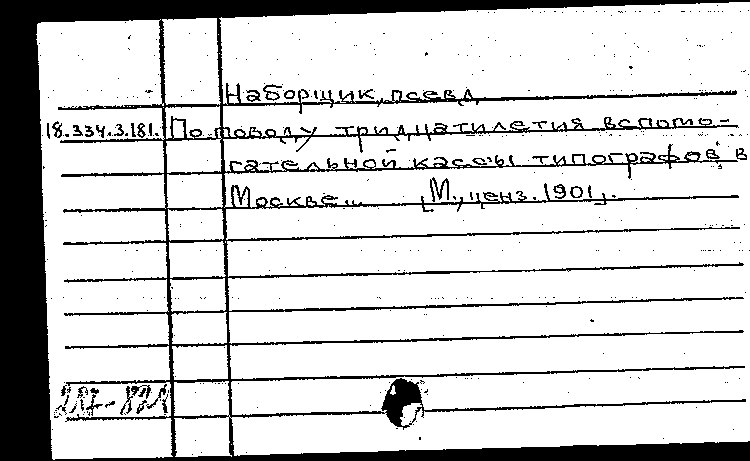 Наборщик, псевд.
18.334.3.181. По поводу тридцатилетия вспомо-
гательной кассы типографов в
Москве... [М., ценз. 1901].